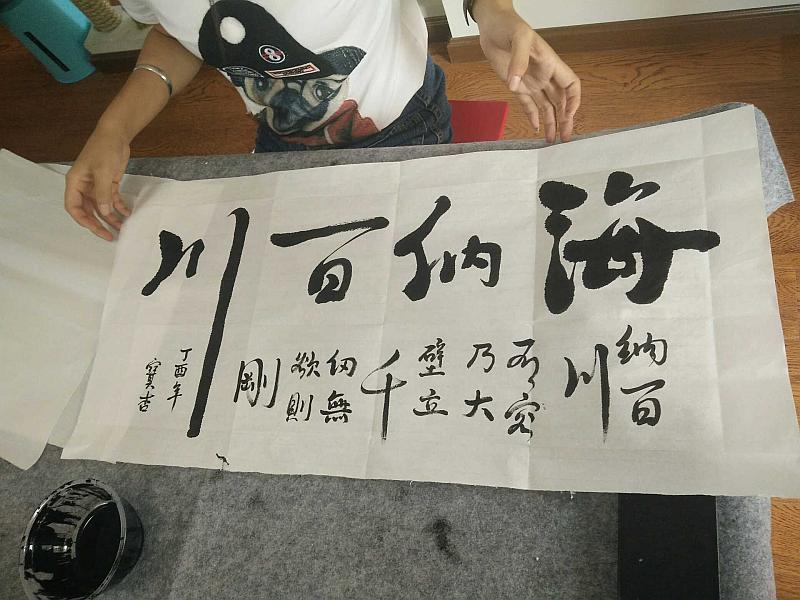 海納百川
納百
川
有容
乃大
壁立
千
仞無
欲則
剛
丁酉年
寶吉